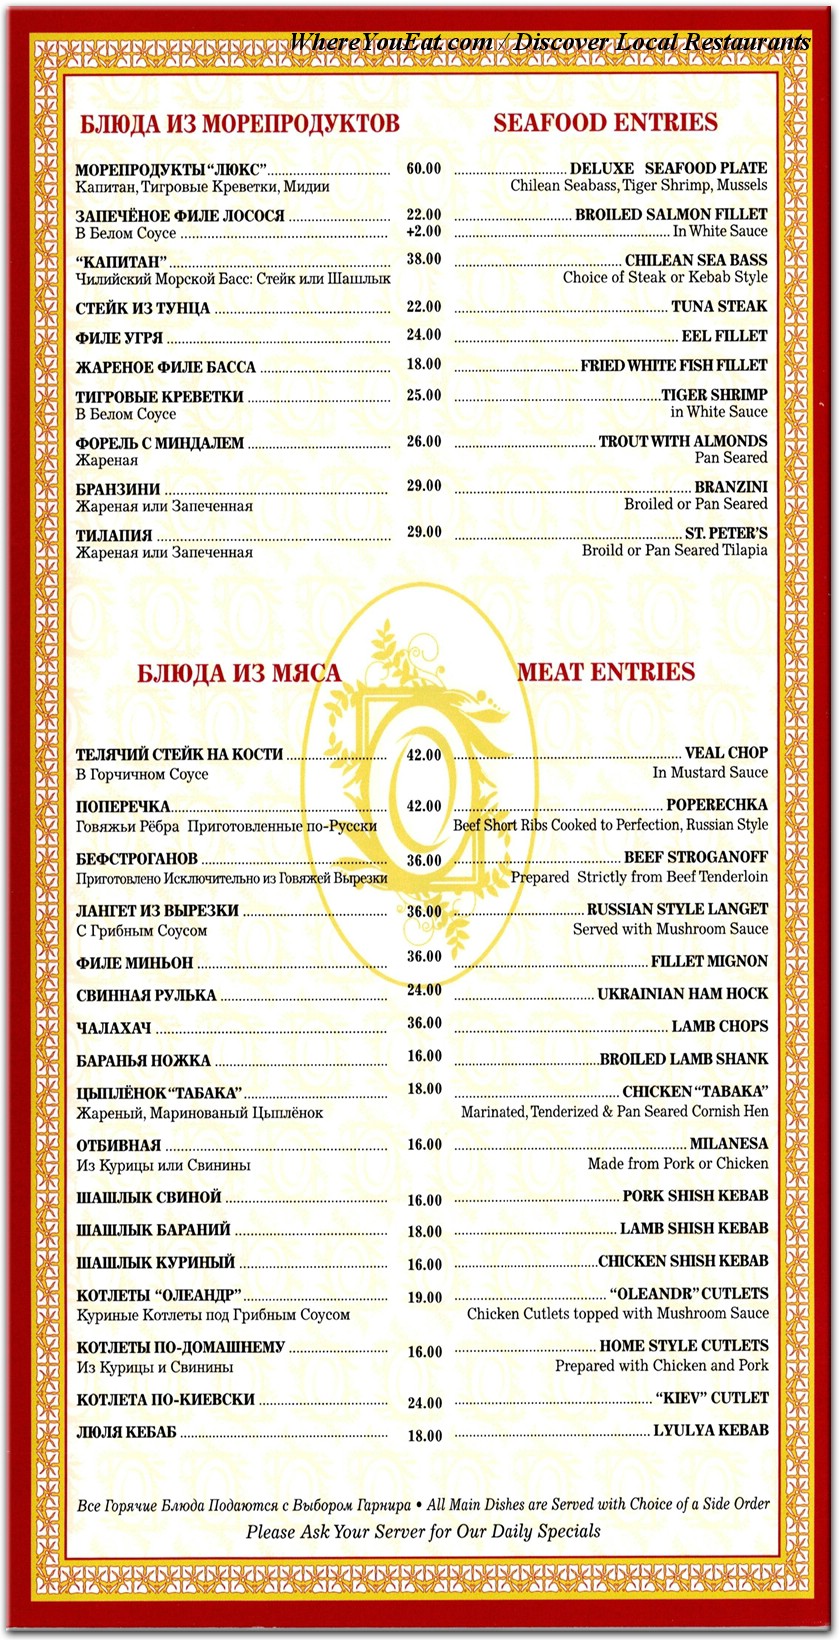 WhereYouEat.com / Discover Local Restaurants
БЛЮДА ИЗ МОРЕПРОДУКТОВ SEAFOOD ENTRIES
МОРЕПРОДУКТЫ “ЛЮКС” 60.00 DELUXE SEAFOOD PLATE
Капитан, Тигровые Креветки, Мидии Chilean Seabass, Tiger Shrimp, Mussels
ЗАПЕЧЁНОЕ ФИЛЕ ЛОСОСЯ 22.00 BROILED SALMON FILLET
В Белом Соусе +2.00 In White Sauce
“КАПИТАН” 38.00 CHILEAN SEA BASS
Чилийский Морской Басс: Стейк или Шашлык Choice of Steak or Kebab Style
СТЕЙК ИЗ ТУНЦА 22.00 TUNA STEAK
ФИЛЕ УГРЯ 24.00 EEL FILLET
ЖАРЕНОЕ ФИЛЕ БАССА 18.00 FRIED WHITE FISH FILLET
ТИГРОВЫЕ КРЕВЕТКИ 25.00 TIGER SHRIMP
В Белом Соусе in White Sauce
ФОРЕЛЬ С МИНДАЛЕМ 26.00 TROUT WITH ALMONDS
Жареная Pan Seared
БРАНЗИНИ 29.00 BRANZINI
Жареная или Запеченная Broiled or Pan Seared
ТИЛАПИЯ 29.00 ST. PETER’S
Жареная или Запеченная Broild or Pan Seared Tilapia
БЛЮДА ИЗ МЯСА MEAT ENTRIES
ТЕЛЯЧИЙ СТЕЙК НА КОСТИ 42.00 VEAL CHOP
В Горчичном Соусе In Mustard Sauce
ПОПЕРЕЧКА 42.00 POPERECHKA
Говяжьи Рёбра Приготовленные по-Русски Beef Short Ribs Cooked to Perfection, Russian Style
БЕФСТРОГАНОВ 36.00 BEEF STROGANOFF
Приготовлено Исключительно из Говяжей Вырезки Prepared Strictly from Beef Tenderloin
ЛАНГЕТ ИЗ ВЫРЕЗКИ 36.00 RUSSIAN STYLE LANGET
С Грибным Соусом Served with Mushroom Sauce
ФИЛЕ МИНЬОН 36.00 FILLET MIGNON
СВИННАЯ РУЛЬКА 24.00 UKRAINIAN HAM HOCK
ЧАЛАХАЧ 36.00 LAMB CHOPS
БАРАНЬЯ НОЖКА 16.00 BROILED LAMB SHANK
ЦЫПЛЁНОК “ТАБАКА” 18.00 CHICKEN “TABAKA”
Жареный, Маринованый Цыплёнок Marinated, Tenderized & Pan Seared Cornish Hen
ОТБИВНАЯ 16.00 MILANESA
Из Курицы или Свинины Made from Pork or Chicken
ШАШЛЫК СВИНОЙ 16.00 PORK SHISH KEBAB
ШАШЛЫК БАРАНИЙ 18.00 LAMB SHISH KEBAB
ШАШЛЫК КУРИНЫЙ 16.00 CHICKEN SHISH KEBAB
КОТЛЕТЫ “ОЛЕАНДР” 19.00 “OLEANDR” CUTLETS
Куриные Котлеты под Грибным Соусом Chicken Cutlets topped with Mushroom Sauce
КОТЛЕТЫ ПО-ДОМАШНЕМУ 16.00 HOME STYLE CUTLETS
Из Курицы и Свинины Prepared with Chicken and Pork
КОТЛЕТА ПО-КИЕВСКИ 24.00 “KIEV” CUTLET
ЛЮЛЯ КЕБАБ 18.00 LYULYA KEBAB
Все Горячие Блюда Подаются с Выбором Гарнира • All Main Dishes are Served with Choice of a Side Order
Please Ask Your Server for Our Daily Specials